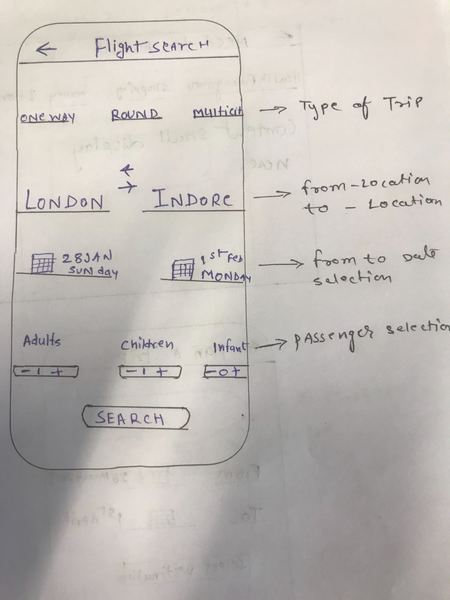 ← Flight SEARCH
ONE WAY ROUND Multicit → Type of Trip
LONDON INDORE → from-Location
to - Location
28 JAN 1st Feb → from to Date
Sunday MONDAY selection
Adults Children Infant → passenger selection
- 1 + - 1 + - 0 +
SEARCH